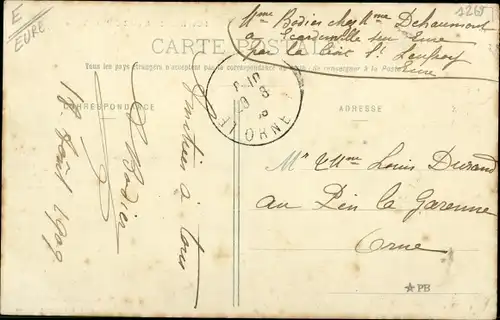 E
EURE
1265
Mme Bodier chez Mme Dehaumont
a Ecardenville sur Eure
par la Croix St Leufroy
Eure
CARTE POSTALE
Tous les pays étrangers n'acceptent pas la correspondance au recto, se renseigner à la Poste
CORRESPONDANCE
ADRESSE
ORNE
Amitiés à tous
Bodier
18 Août 1909
Mr & Mme Louis Durand
au Pin la Garenne
Orne
PB